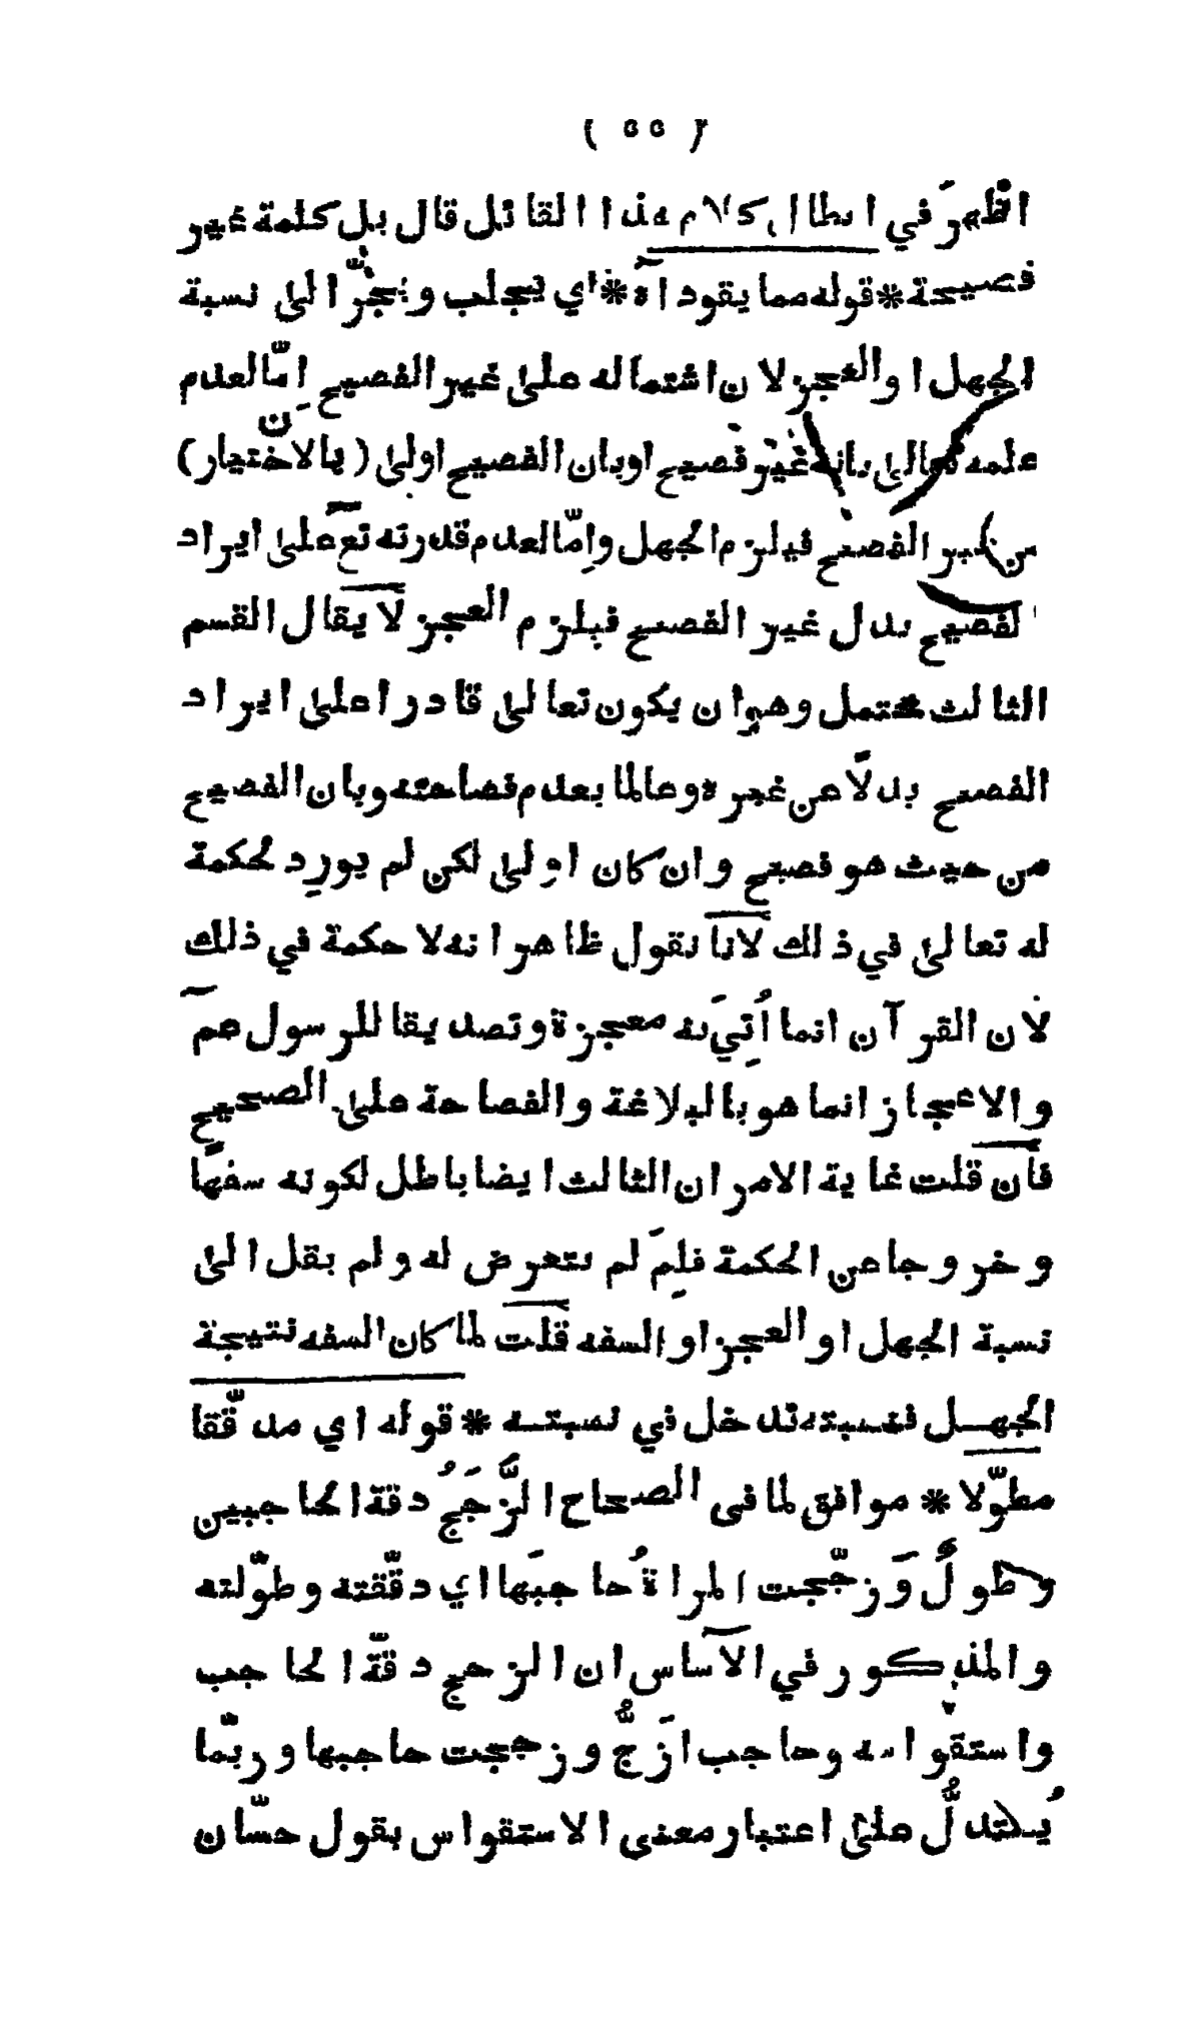 ( ٥٥ )
اظهرَ في ابطال كلام هذا القائل قال بل كلمة غير
فصيحة * قوله مما يقود آه * اي يجلب ويجرّ الى نسبة
الجهل او العجز لان اشتماله على غير الفصيح اِمّا لعدم
علمه تعالى بانه غير فصيح او بان الفصيح اولى ( بالاختيار )
من غير الفصيح فيلزم الجهل واِمّا لعدم قدرته تع على ايراد
الفصيح بدل غير الفصيح فيلزم العجز لا يقال القسم
الثالث محتمل وهو ان يكون تعالى قادرا على ايراد
الفصيح بدلًا عن غيره وعالما بعدم فصاحته وبان الفصيح
من حيث هو فصيح وان كان اولى لكن لم يورد لحكمة
له تعالى في ذلك لانا نقول ظاهر انه لا حكمة في ذلك
لان القرآن انما اُتِيَ به معجزة وتصديقا للرسول عم
والاعجاز انما هو بالبلاغة والفصاحة على الصحيح
فان قلت غاية الامر ان الثالث ايضا باطل لكونه سفهًا
وخروجا عن الحكمة فلِمَ لم يتعرض له ولم يقل الى
نسبة الجهل او العجز او السفه قلت لما كان السفه نتيجة
الجهل فنسبته تدخل في نسبته * قوله اي مدقّقا
مطوّلا * موافق لما فى الصحاح الزَّجَجُ دقة الحاجبين
وطولٌ وَزجّجت المراةُ حاجبَها اي دقّقته وطوّلته
والمذكور في الاساس ان الزجج دقّة الحاجب
واستقواسه وحاجب ازَجُّ وزججت حاجبها وربّما
يُستدلُّ على اعتبار معنى الاستقواس بقول حسّان